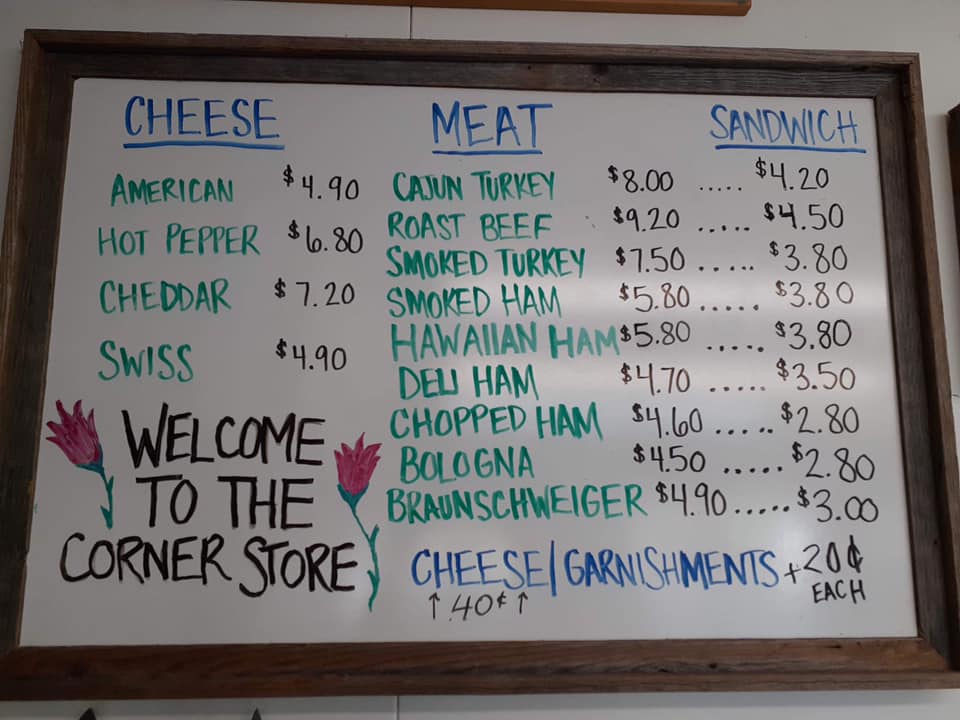 CHEESE MEAT SANDWICH
AMERICAN $4.90
HOT PEPPER $6.80
CHEDDAR $7.20
SWISS $4.90
CAJUN TURKEY $8.00 ..... $4.20
ROAST BEEF $9.20 ..... $4.50
SMOKED TURKEY $7.50 ..... $3.80
SMOKED HAM $5.80 ..... $3.80
HAWAIIAN HAM $5.80 ..... $3.80
DELI HAM $4.70 ..... $3.50
CHOPPED HAM $4.60 ..... $2.80
BOLOGNA $4.50 ..... $2.80
BRAUNSCHWEIGER $4.90 ..... $3.00
WELCOME
TO THE
CORNER STORE
CHEESE/GARNISHMENTS +20¢
EACH
↑ .40¢ ↑